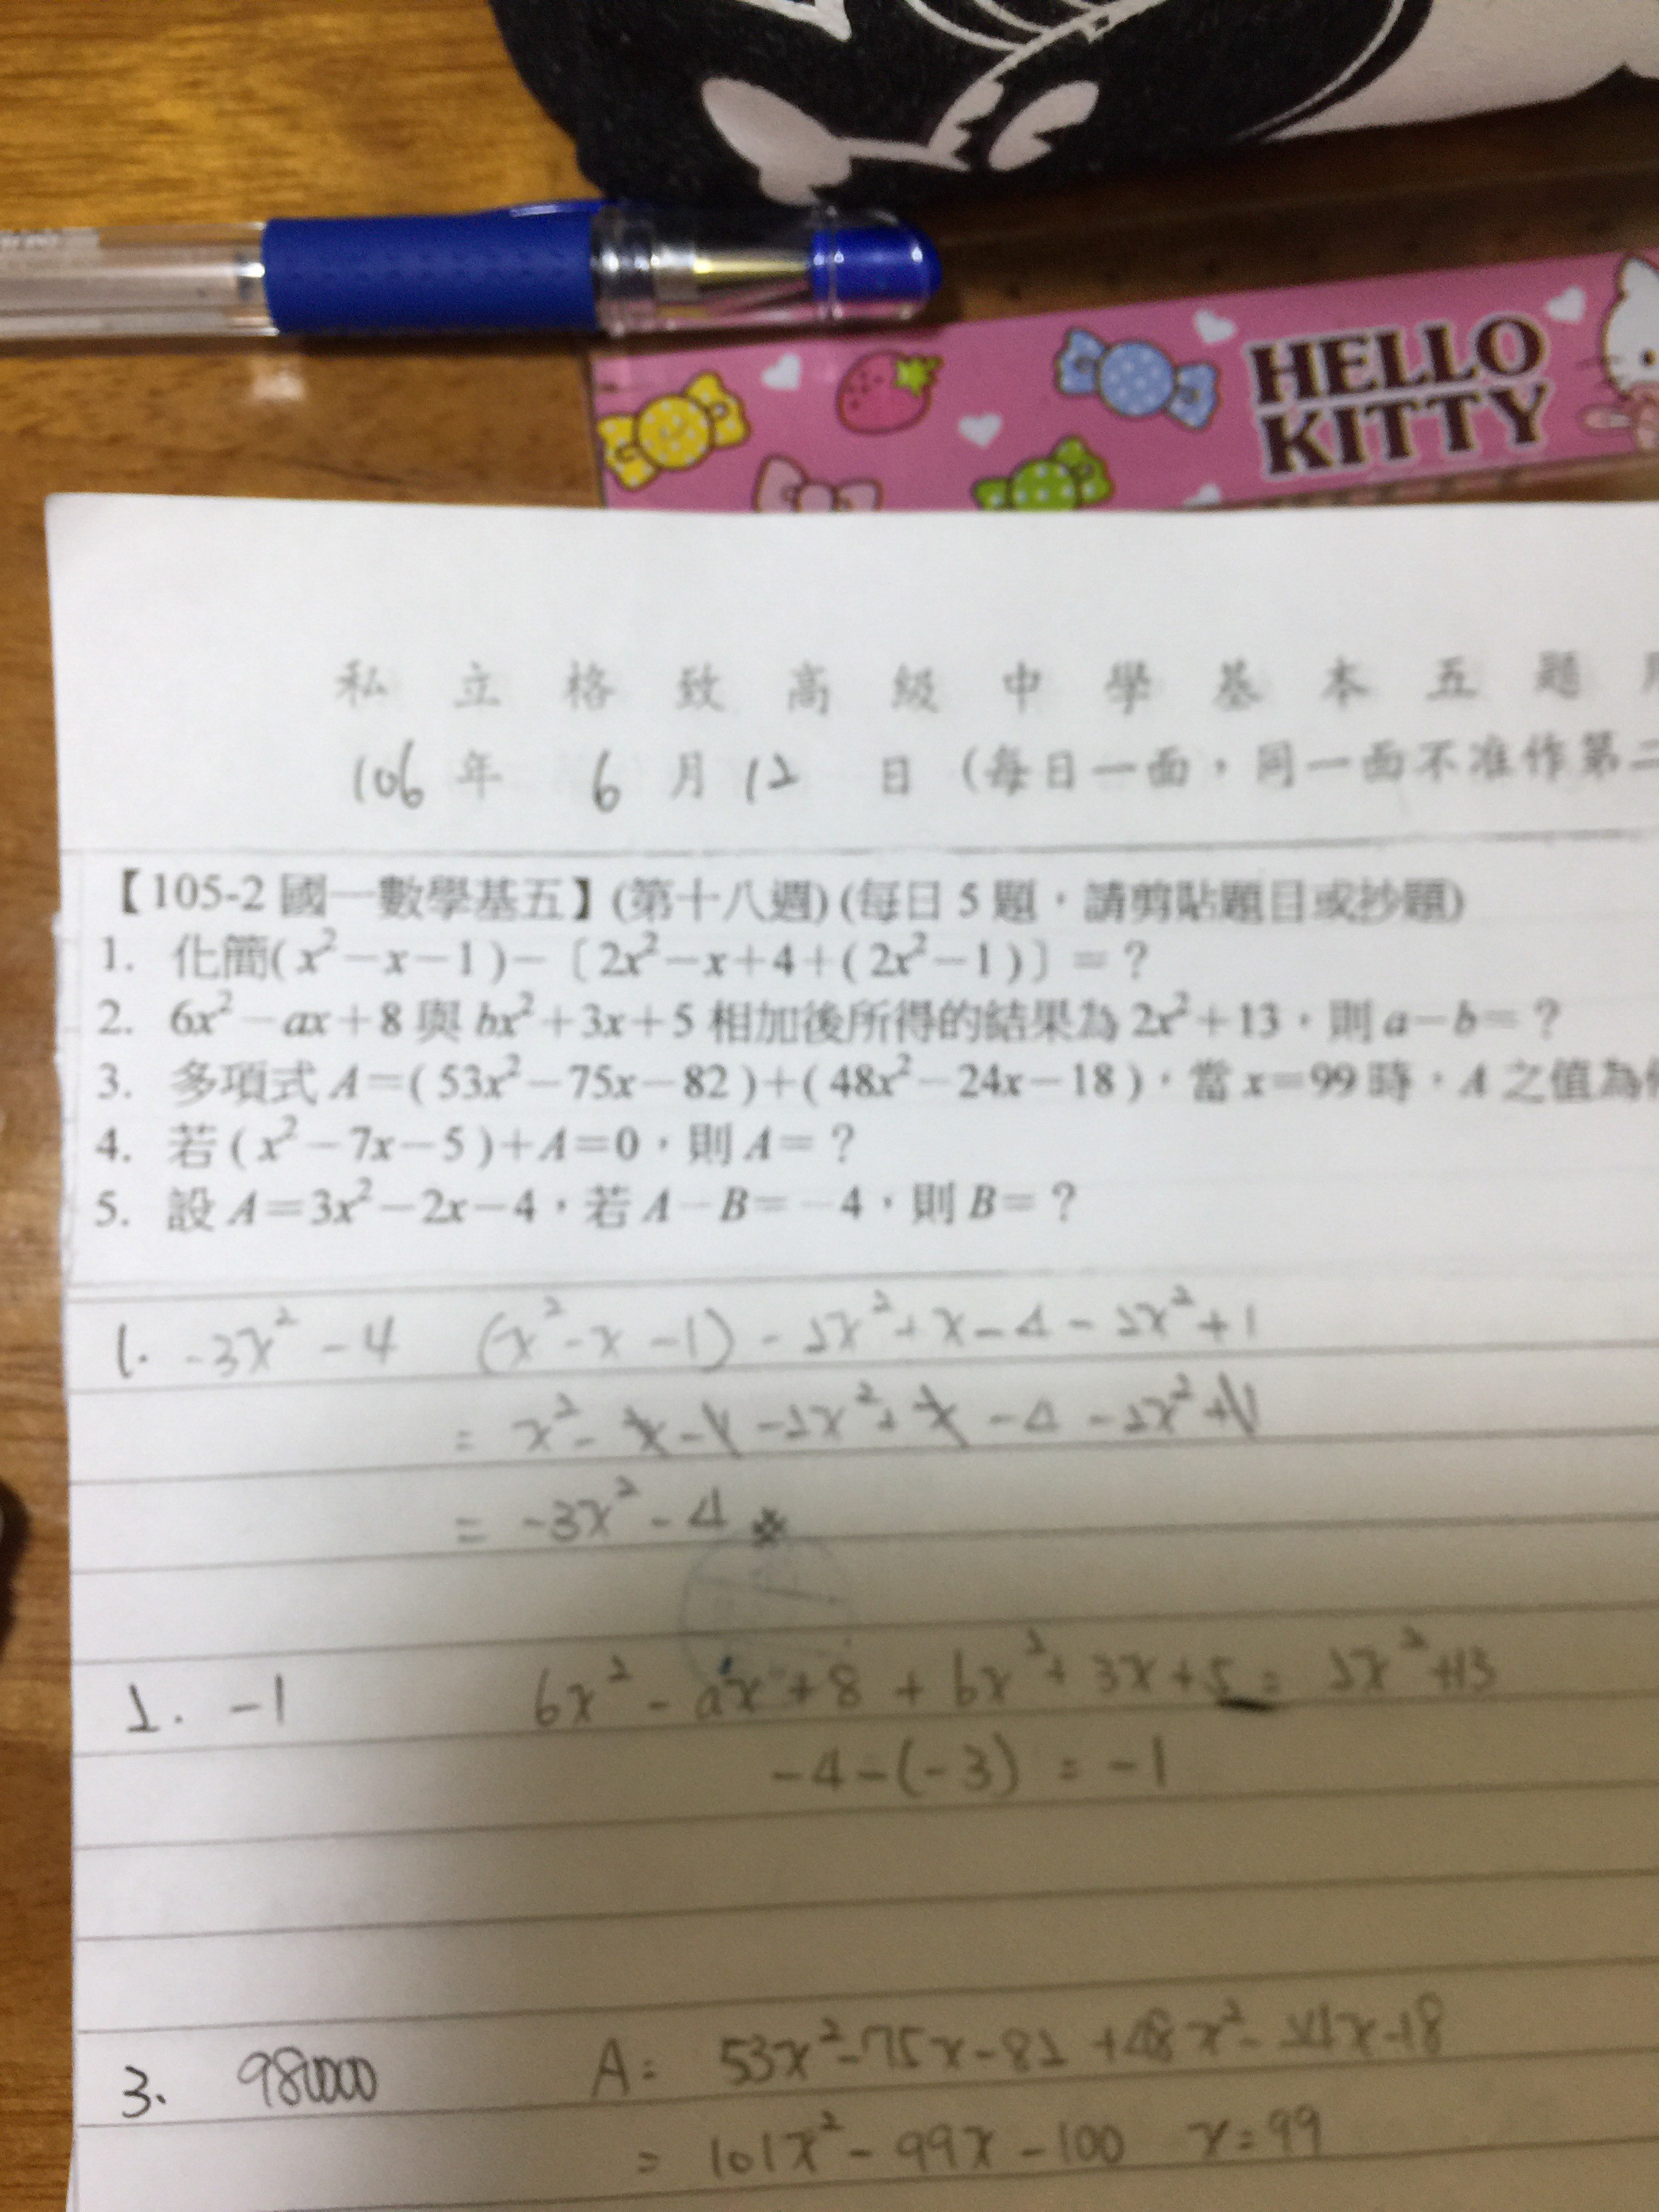 HELLO
KITTY
私立格致高級中學基本五題
106年 6月12日(每日一面,同一面不准作第二
【105-2國一數學基五】(第十八週)(每日5題,請剪貼題目或抄題)
1. 化簡(x²-x-1)-〔2x²-x+4+(2x²-1)〕=?
2. 6x²-ax+8與bx²+3x+5相加後所得的結果為2x²+13,則a-b=?
3. 多項式A=(53x²-75x-82)+(48x²-24x-18),當x=99時,A之值為
4. 若(x²-7x-5)+A=0,則A=?
5. 設A=3x²-2x-4,若A-B=-4,則B=?
1. -3x²-4 (x²-x-1)-2x²+x-4-2x²+1
= x²-x-1-2x²+x-4-2x²+1
= -3x²-4
2. -1 6x²-ax+8+bx²+3x+5=2x²+13
-4-(-3)=-1
3. 980000 A= 53x²-75x-82+48x²-24x-18
= 101x²-99x-100 x=99